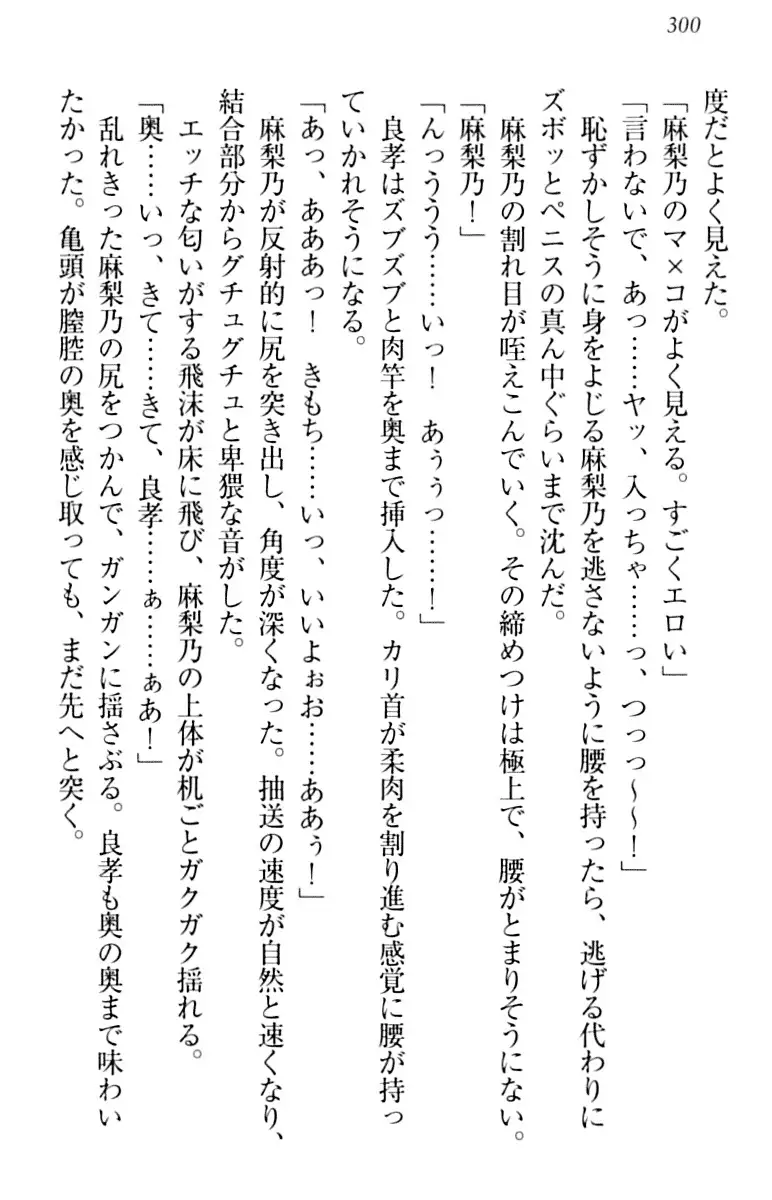 300
度だとよく見えた。
「麻梨乃のマ×コがよく見える。すごくエロい」
「言わないで、あっ……ヤッ、入っちゃ……っ、つっっ～～！」
恥ずかしそうに身をよじる麻梨乃を逃さないように腰を持ったら、逃げる代わりに
ズボッとペニスの真ん中ぐらいまで沈んだ。
麻梨乃の割れ目が咥えこんでいく。その締めつけは極上で、腰がとまりそうにない。
「麻梨乃！」
「んっううう……いっ！　あぅぅっ……！」
良孝はズブズブと肉竿を奥まで挿入した。カリ首が柔肉を割り進む感覚に腰が持っ
ていかれそうになる。
「あっ、あああっ！　きもち……いっ、いいよぉお……ああぅ！」
麻梨乃が反射的に尻を突き出し、角度が深くなった。抽送の速度が自然と速くなり、
結合部分からグチュグチュと卑猥な音がした。
エッチな匂いがする飛沫が床に飛び、麻梨乃の上体が机ごとガクガク揺れる。
「奥……いっ、きて……きて、良孝……ぁ……ぁあ！」
乱れきった麻梨乃の尻をつかんで、ガンガンに揺さぶる。良孝も奥の奥まで味わい
たかった。亀頭が膣腔の奥を感じ取っても、まだ先へと突く。